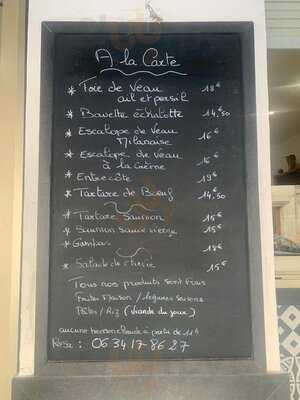 A la Carte
* Foie de Veau 18€
ail et persil
* Bavette échalotte 14,50
* Escalope de Veau 16€
Milanaise
* Escalope de Veau 16€
à la Crème
* Entrecôte 19€
* Tartare de Boeuf 14,50
* Tartare Saumon 15€
* Saumon sauce vierge 15€
* Gambas 18€
* Salade de chèvre 15€
Tous nos produits sont frais
Frites Maison / légumes saisons
Pâtes / Riz (Viande du jour)
aucune à partir de 11€
Résa : 06 34 17 86 27